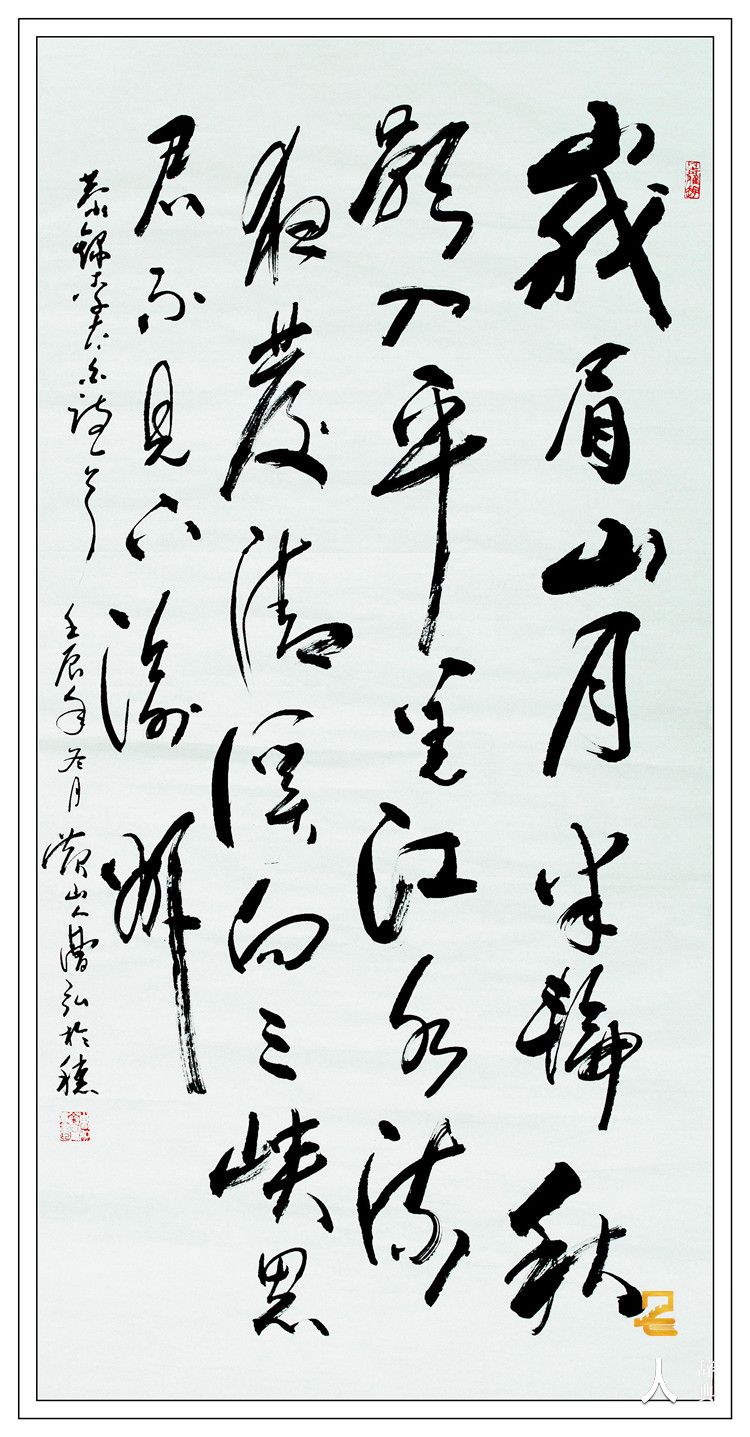 峨眉山月半輪秋
影入平羌江水流
夜發清溪向三峽思
君不見下渝州
恭錄李太白詩一首 壬辰年冬月 山人弘於穗
名人